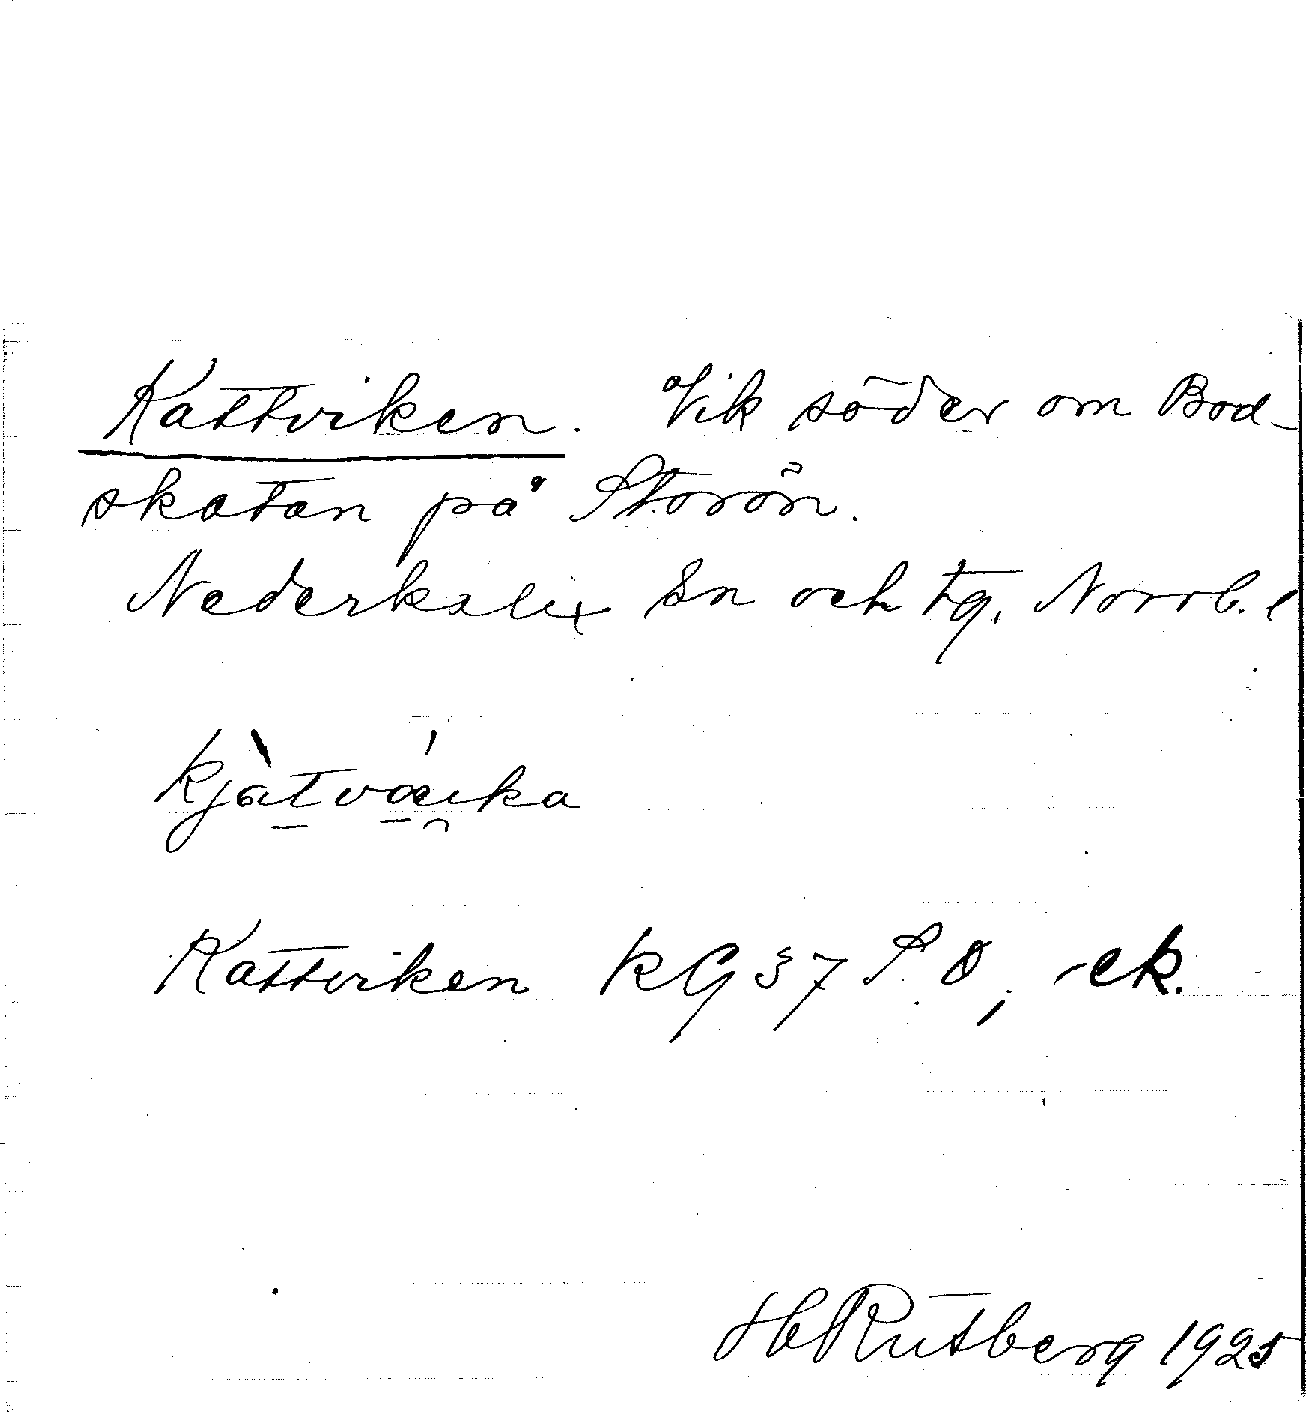 Kattviken. Vik söder om Bod-
skatan på Storön.
Nederkalix sn och tg. Norrb. l
kjàtváika
Kattviken KG 37 SO, ek.
H Rutberg 1925